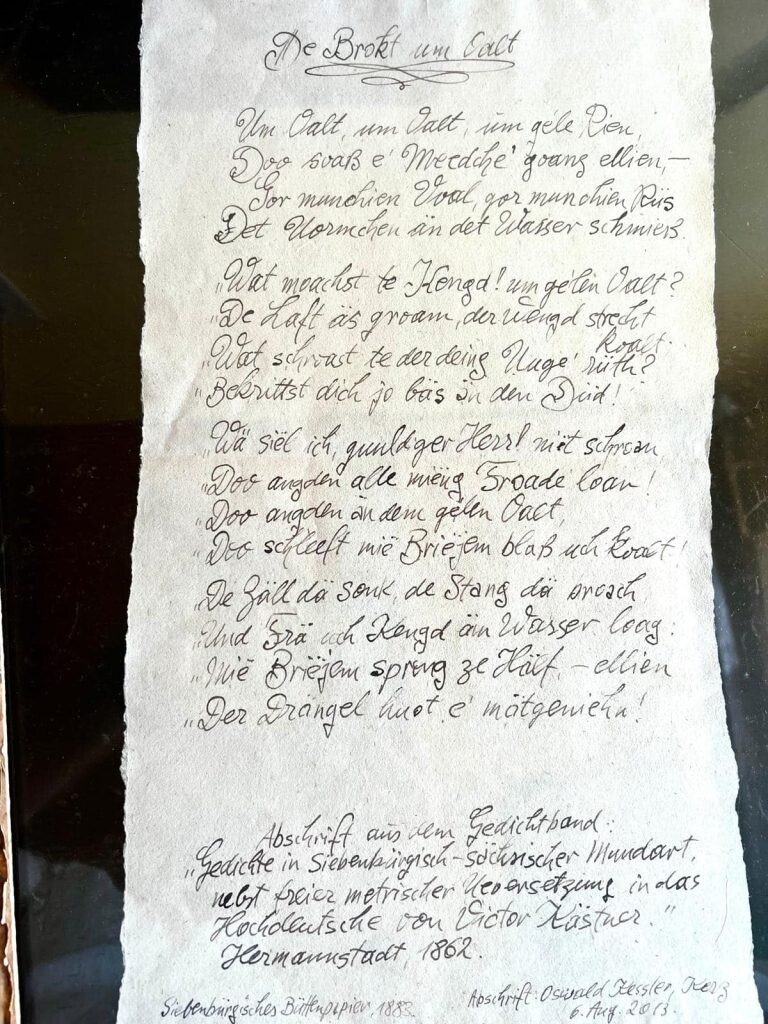 De Brokt um Oalt
Um Oalt, um Oalt, um gële Rien,
Doo soaß e' Meedche' goanz ellien,—
Gor munchien Voal, gor munchien Rüs
Det Uormchen än det Wasser schmieß.
„Wat moachst te Kengd! um gëlen Oalt?
„De Laft äs groam, der Wengd strecht
koalt.
„Wat schroast te der deing Uuge' rüth?
„Bekrittst dich jo bäs än den Diud!
„Wä siël ich, gnuldiger Herr! niët schroan,
„Doo angden alle mieng Froade' loan!
„Doo angden än dem gëlen Oalt,
„Doo schleeft mië Briëjem blaß uch koalt!
„De Zäll dä sonk, de Stang dä broach,
„Und Frä uch Kengd äm Wasser loag:
„Mië Briëjem spreng ze Hälf, – ellien
„Der Drängel huot e' mätgeniehn!
Abschrift aus dem Gedichtband:
„Gedichte in Siebenbürgisch-sächsischer Mundart,
nebst freier metrischer Uebersetzung in das
Hochdeutsche von Victor Kästner."
Hermannstadt, 1862.
Siebenbürgisches Büttenpapier, 1883.
Abschrift: Oswald Kessler, Kerz
6. Aug. 2013.